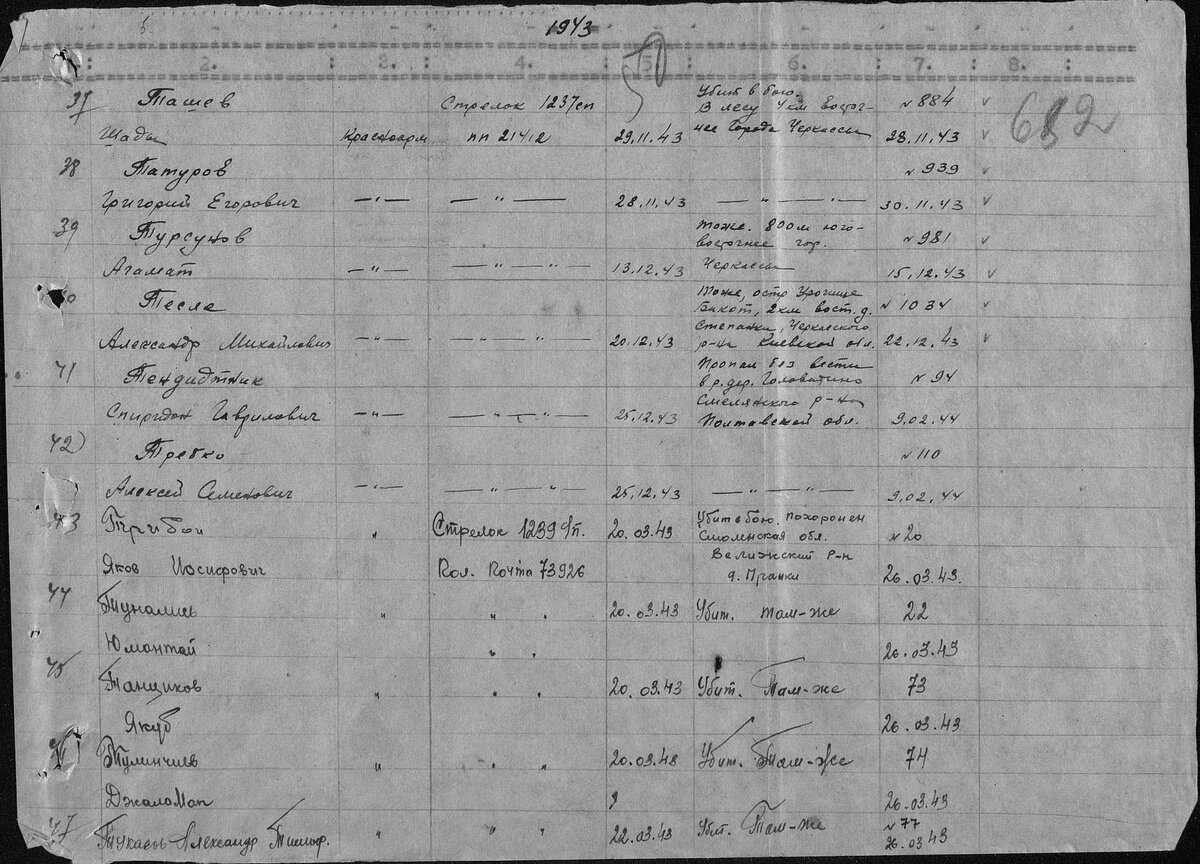 1943
2. 3. 4. 5. 6. 7. 8.
37 Ташев Стрелок 1237сп Убит в бою. №884 v
В лесу 4км Восточ-
Шады Красноарм пп 21412 29.11.43 нее Города Черкассы 28.11.43 v 682
38 Татуров №939 v
Григорий Егорович —"— — " — 28.11.43 — " — " — 30.11.43 v
39 Турсунов тоже. 800м юго- №981 v
восточнее гор.
Агамат —"— — " — " — 13.12.43 Черкассы 15.12.43 v
40 Тесля Тоже, остр Урочище №1034 v
Бакот, 2км вост. д.
Степанки, Черкасского
Александр Михайлович —"— — " — " — 20.12.43 р-на Киевской обл. 22.12.43 v
41 Тендидтник Пропал без вести №94
в р. дер. Головатино
Смелянского р-на
Спиридон Гаврилович —"— — " — " — 25.12.43 Полтавской обл. 9.02.44
42) Требко №110
Алексей Семенович —"— — " — " — 25.12.43 — " — " — 9.02.44
43 Трибой " Стрелок 1239 20.03.43 Убит в бою. похоронен №20
Смоленская обл.
Велижский р-н
Яков Иосифович Пол. Почта 73926 д. Пранки 26.03.43.
44 Туналиев " " . 20.03.43 Убит. там-же 22
Юмантай " . 26.03.43
45 Танщиков " " . 20.03.43 Убит. Там-же 73
Якуб 26.03.43
Тулинчиев " " " 20.03.43 Убит. Там-же 74
Джаломап 26.03.43
47 Тукаев Александр " " " 22.03.43 Убит. Там-же №77
26.03.43